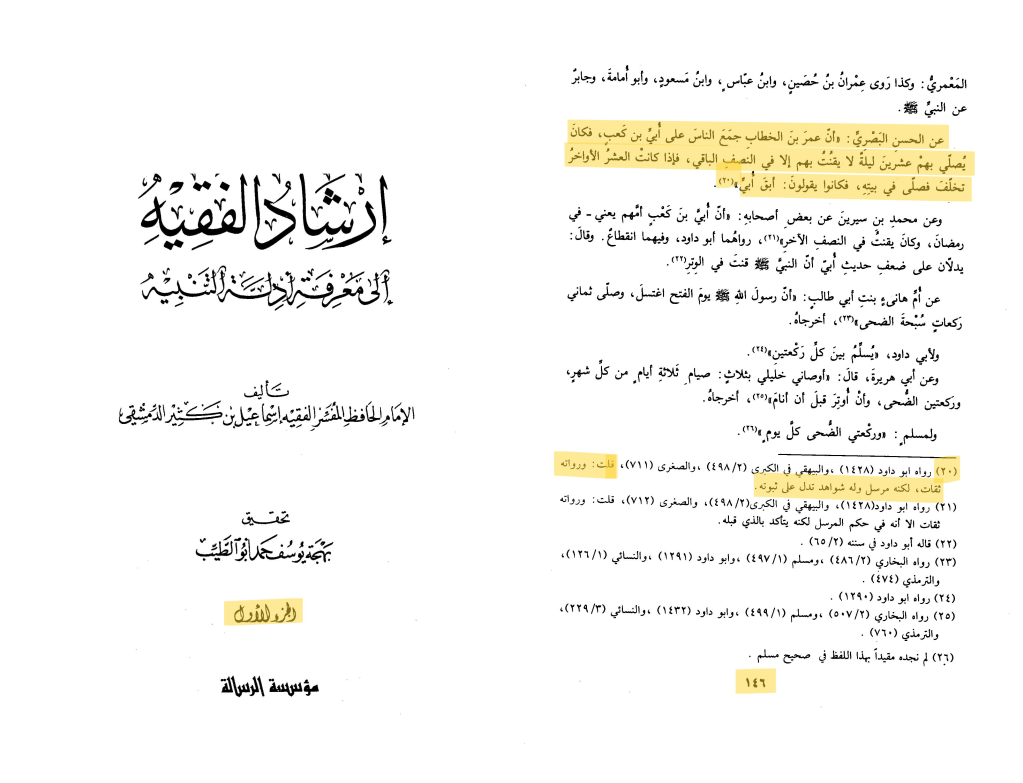 المَعْمريُّ: وكذا رَوى عِمْرانُ بنُ حُصَينٍ، وابنُ عبّاسٍ، وابنُ مَسعودٍ، وأبو أُمامةَ، وجابرٌ
عن النبيِّ ﷺ.
عن الحسنِ البَصْريِّ: «أنّ عمرَ بنَ الخطابِ جمَعَ الناسَ على أُبيِّ بن كَعبٍ، فكانَ
يُصلّي بهمْ عشرينَ ليلةً لا يقنُتُ بهم إلا في النصفِ الباقي، فإذا كانتْ العشرُ الأواخرُ
تخلّفَ فصلّى في بيتِهِ، فكانوا يقولونَ: أبقَ أُبيٌّ»(٢٠).
وعن محمدِ بن سيرينَ عن بعضِ أصحابهِ: «أنّ أُبيَّ بنَ كَعْبٍ أمَّهم يعني - في
رمضانَ، وكانَ يقنتُ في النصفِ الآخرِ»(٢١)، رواهُما أبو داود، وفيهما انقطاعٌ. وقالَ:
يدلّان على ضعفِ حديثِ أُبيّ أنّ النبيَّ ﷺ قنتَ في الوترِ(٢٢).
عن أُمِّ هانىءٍ بنتِ أبي طالبٍ: «أنّ رسولَ اللهِ ﷺ يومَ الفتحِ اغتسلَ، وصلّى ثماني
ركعاتٍ سُبْحةَ الضحى»(٢٣)، أخرجاهُ.
ولأبي داود، «يُسلِّمُ بينَ كلِّ رَكْعتينِ»(٢٤).
وعن أبي هريرةَ، قالَ: «أوصاني خليلي بثلاثٍ: صيامِ ثَلاثةِ أيامٍ من كلِّ شهرٍ،
وركعتينِ الضُّحى، وأنْ أُوتِرَ قبلَ أن أنامَ»(٢٥)، أخرجاهُ.
ولمسلمٍ: «وركْعتي الضُّحى كلَّ يومٍ»(٢٦).
(٢٠) رواه ابو داود (١٤٢٨) ،والبيهقي في الكبرى (٤٩٨/٢) ،والصغرى (٧١١)، قلت: ورواته
ثقات، لكنه مرسل وله شواهد تدل على ثبوته.
(٢١) رواه ابو داود(١٤٢٨)، والبيهقي في الكبرى(٤٩٨/٢)، والصغرى (٧١٢)، قلت: ورواته
ثقات الا أنه في حكم المرسل لكنه يتأكد بالذي قبله.
(٢٢) قاله أبو داود في سننه (٦٥/٢) .
(٢٣) رواه البخاري (٤٨٦/٢) ،ومسلم (٤٩٧/١) ،وابو داود (١٢٩١) ،والنسائي (١٢٦/١)،
والترمذي (٤٧٤) .
(٢٤) رواه ابو داود (١٢٩٠) .
(٢٥) رواه البخاري (٥٠٧/٢) ،ومسلم (٤٩٩/١) ،وابو داود (١٤٣٢) ،والنسائي (٢٢٩/٣)،
والترمذي (٧٦٠) .
(٢٦) لم نجده مقيداً بهذا اللفظ في صحيح مسلم .
١٤٦
إرْشَادُ الفَقِيْهِ
إلى مَعْرِفَةِ أدِلَّةِ التَّنْبِيْهِ
تَأليف
الإمَامِ الحَافِظِ المُفَسِّرِ الفَقِيهِ إسْمَاعِيلَ بن كَثِيْر الدِّمَشْقِي
تحقيق
بَهْجَة يُوسُف حَمَد أبُو الطَّيِّب
الجزء الأول
مؤسسة الرسالة